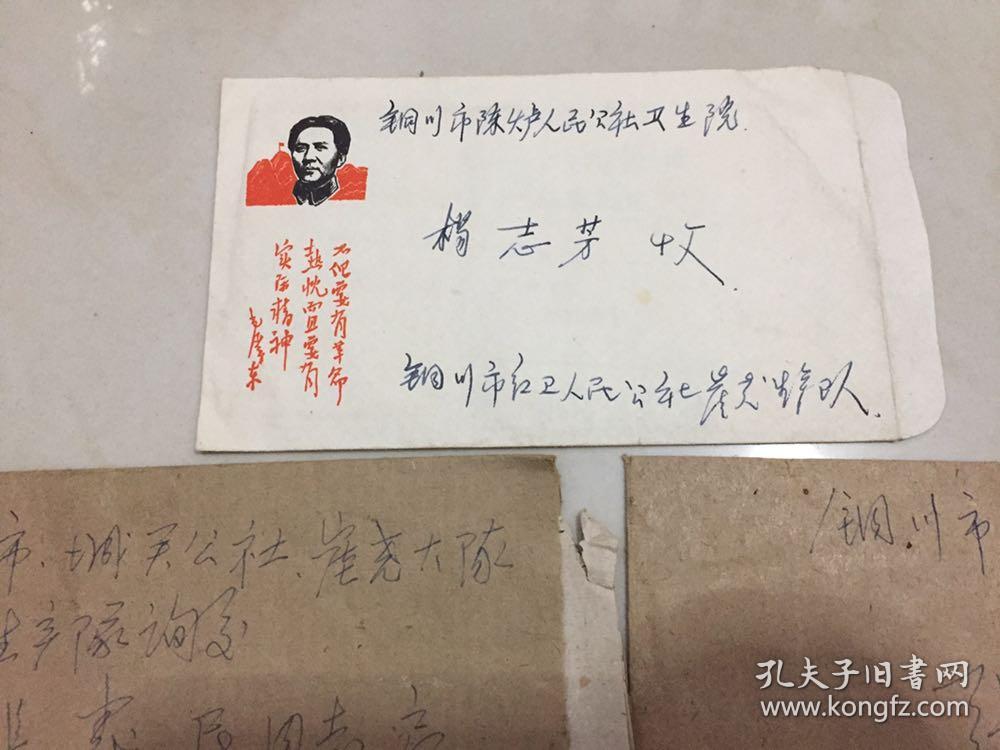 铜川市陈炉人民公社卫生院.
杨志芳 收.
铜川市红卫人民公社崔尧生产队.
不但要有革命
热忱而且要有
实际精神
毛泽东
市、城关公社、崔尧大队
生产队询交
同志
铜川市
孔夫子旧书网
www.kongfz.com